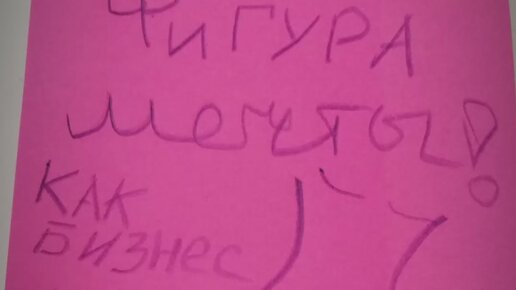 ФИГУРА
мечты!
КАК
БИЗНЕС